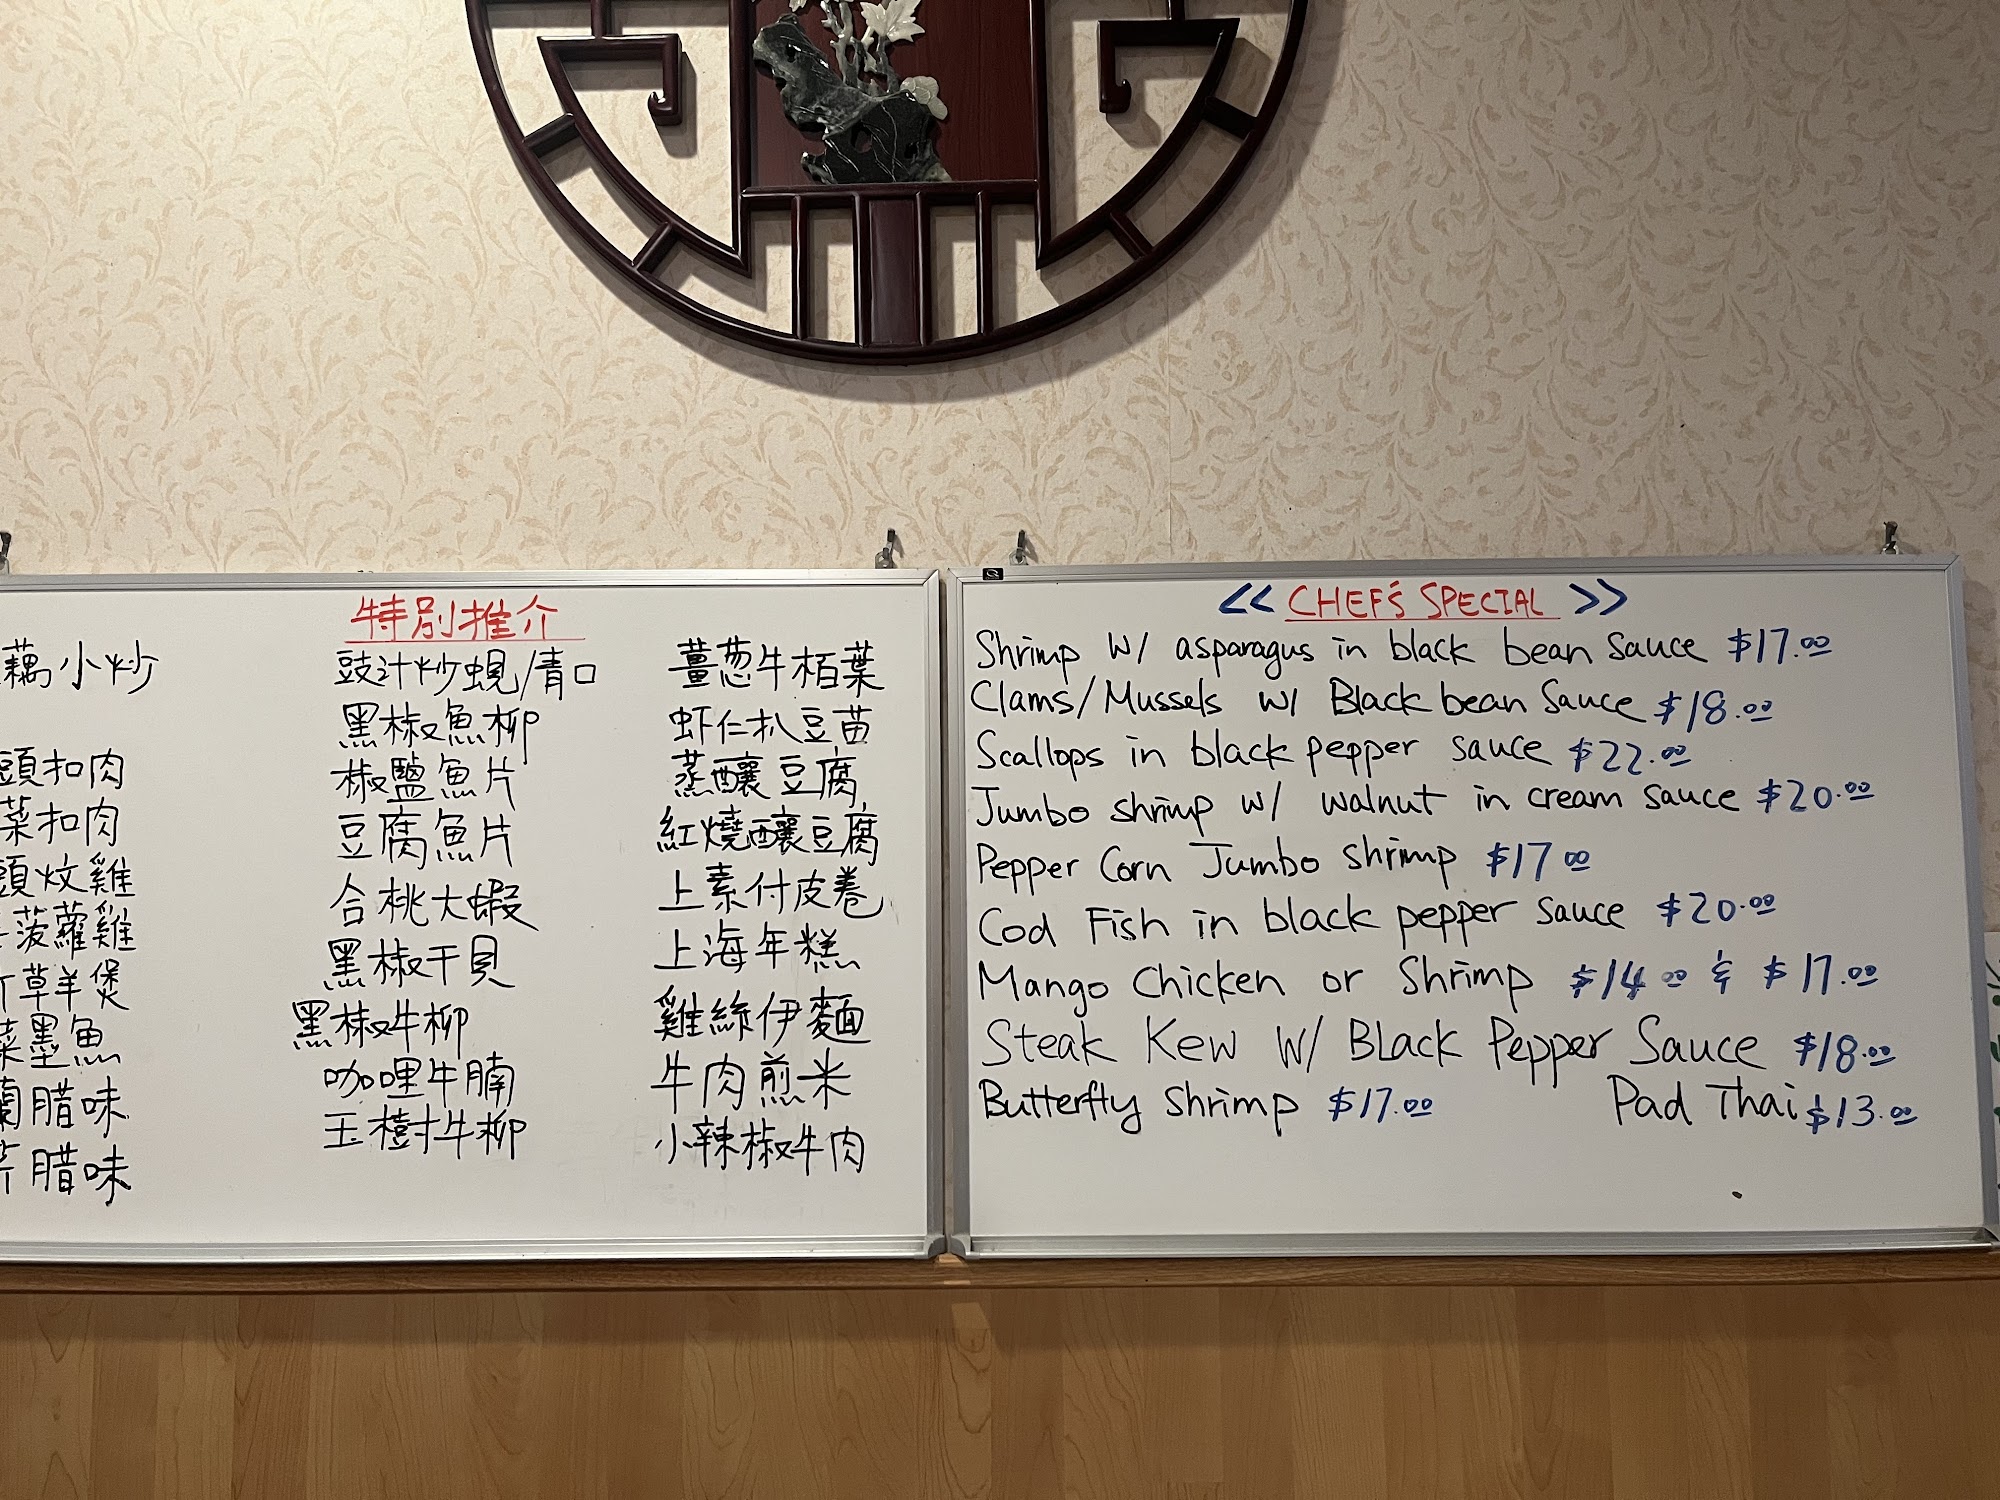 特別推介
藕小炒
頭扣肉
菜扣肉
頭炆雞
菠蘿雞
草羊煲
菜墨魚
蘭腊味
芹腊味
豉汁炒蜆/青口
黑椒魚柳
椒鹽魚片
豆腐魚片
合桃大蝦
黑椒干貝
黑椒牛柳
咖哩牛腩
玉樹牛柳
薑葱牛栢葉
虾仁扒豆苗
蒸釀豆腐
紅燒釀豆腐
上素付皮卷
上海年糕
雞絲伊麵
牛肉煎米
小辣椒牛肉
<< CHEF'S SPECIAL >>
Shrimp W/ asparagus in black bean Sauce $17.00
Clams/Mussels W/ Black bean Sauce $18.00
Scallops in black pepper sauce $22.00
Jumbo shrimp w/ walnut in cream sauce $20.00
Pepper Corn Jumbo shrimp $17 00
Cod Fish in black pepper sauce $20.00
Mango Chicken or Shrimp $14 00 & $17.00
Steak Kew W/ Black Pepper Sauce $18.00
Butterfly Shrimp $17.00 Pad Thai $13.00